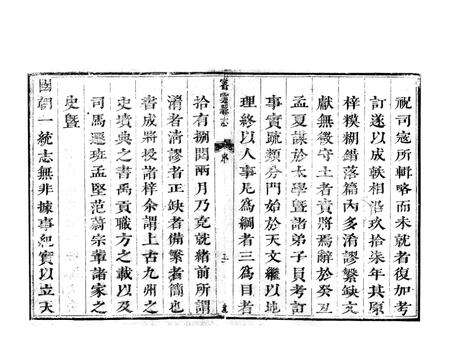 祝司寇所輯略而未就者復加考
訂遂以成帙相沿玖拾柒年其原
梓糢糊錯落篇內多淆謬繁缺文
獻無徵守土者責將焉辭於癸丑
孟夏謀於太學暨諸弟子員考訂
事實疏類分門始於天文繼以地
理終以人事凡爲綱者三爲目者
縣志
序
拾有捌閱兩月乃克就緒前所謂
淆者清謬者正缺者備繁者簡也
書成將授諸梓余謂上古九州之
史墳典之書禹貢職方之載以及
司馬遷班孟堅范蔚宗輩諸家之
史暨
國朝一統志無非據事紀實以立天